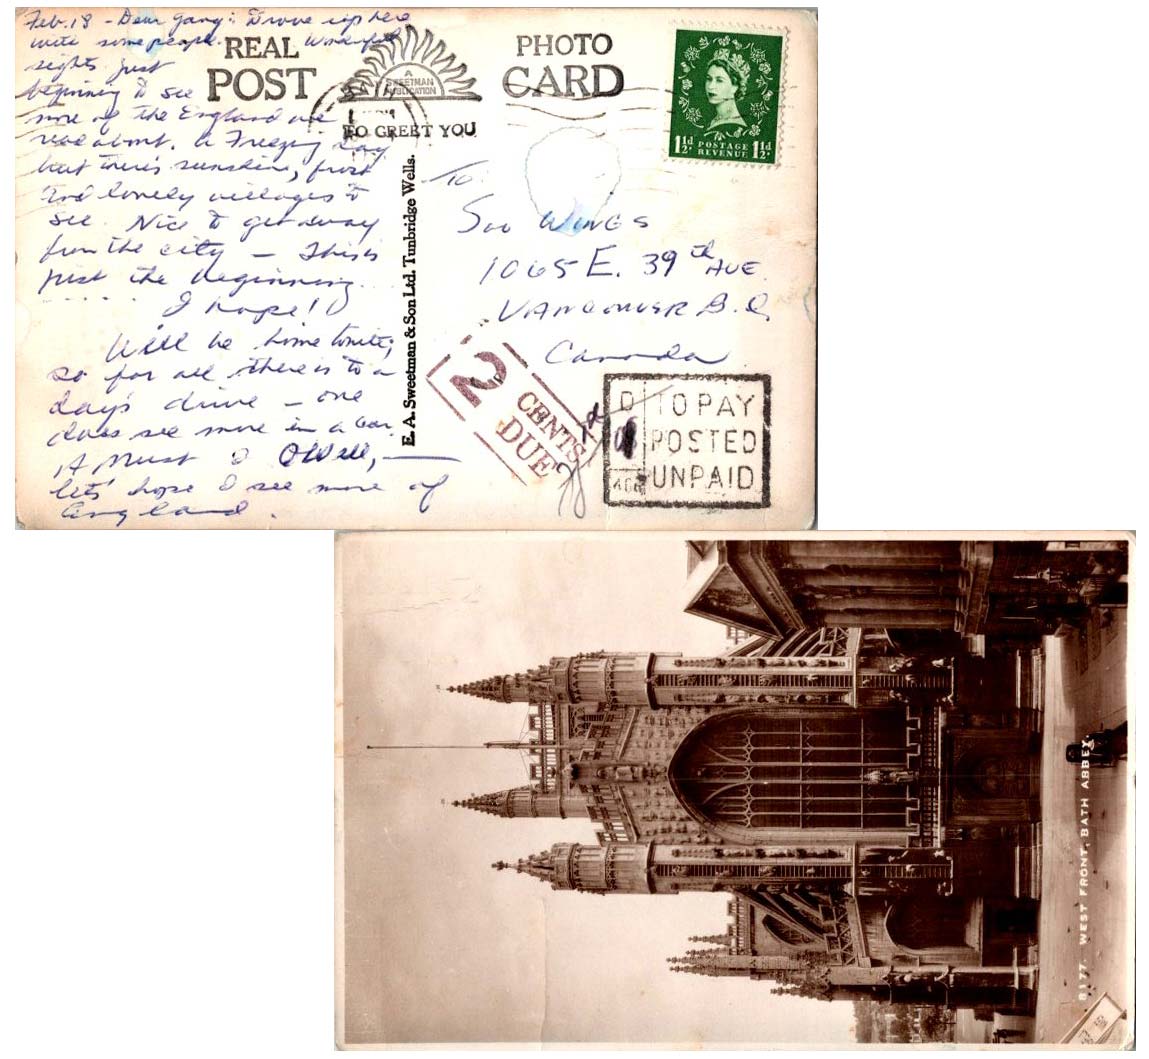 Feb. 18 - Dear gang: Drove up here
with some people. Wonderful
sights just
beginning to see
more of the England we
read about. A Freezing day
but there's sunshine, frost
and lovely villages to
see. Nice to get away
from the city - This is
just the beginning
. . . . . . I hope!
Will be home tonite,
so for all there is to a
day's drive - one
does see more in a car.
A Must O Well, —
lets' hope I see more of
England.
REAL
POST
PHOTO
CARD
A
SWEETMAN
PUBLICATION
TO GREET YOU
E. A. Sweetman & Son Ltd. Tunbridge Wells.
1½d POSTAGE REVENUE 1½d
To:
WINGS
1065 E. 39th AVE.
VANCOUVER B.C.
Canada
2
CENTS
DUE
D
TO PAY
POSTED
UNPAID
8177. WEST FRONT, BATH ABBEY.